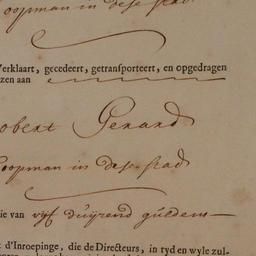 oopman in dese stad
Verklaart, gecedeert, getransporteert, en opgedragen
zen aan
obert Gerard
Coopman in dese stad
ie van vyf duÿzend guldens
t d'Inroepinge, die de Directeurs, in tyd en wyle zul-